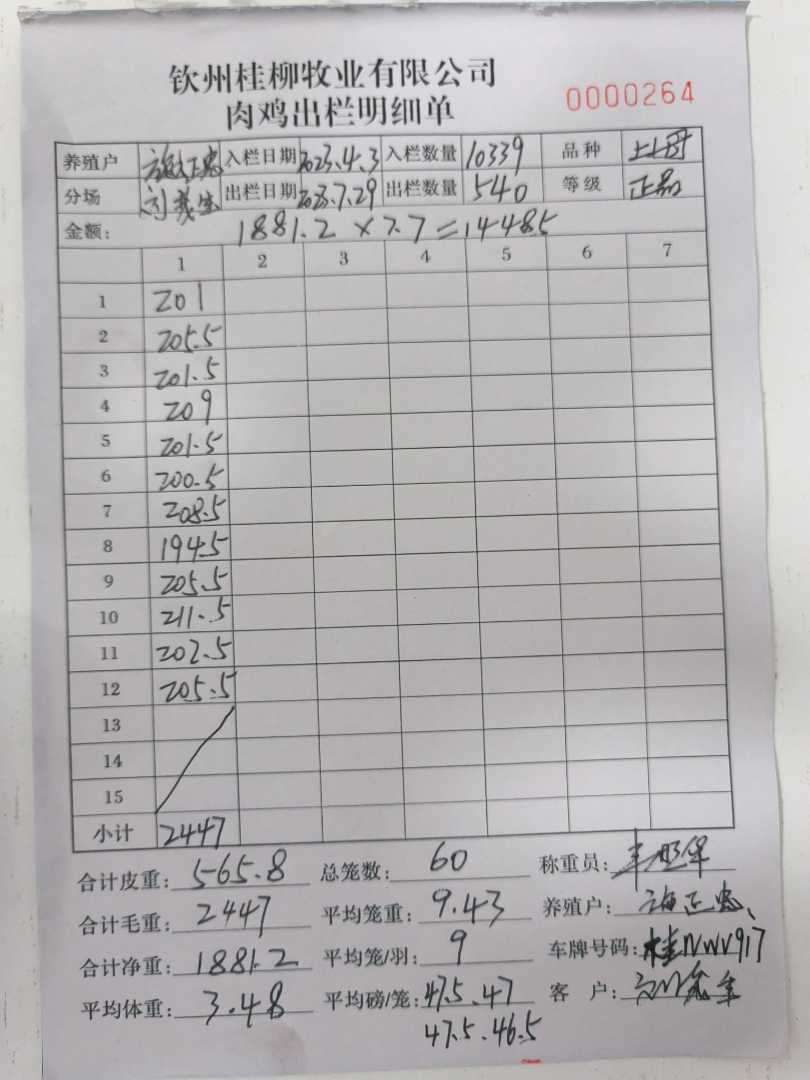 钦州桂柳牧业有限公司
肉鸡出栏明细单
0000264
养殖户 施正忠 入栏日期 2023.4.3 入栏数量 10339 品种 土2母
分场 刘茂生 出栏日期 2023.7.29 出栏数量 540 等级 正品
金额: 1881.2 × 7.7 = 14485
1 2 3 4 5 6 7
1 201
2 205.5
3 201.5
4 209
5 201.5
6 200.5
7 208.5
8 194.5
9 205.5
10 211.5
11 202.5
12 205.5
13
14
15
小计 2447
合计皮重: 565.8 总笼数: 60 称重员:
合计毛重: 2447 平均笼重: 9.43 养殖户: 施正忠
合计净重: 1881.2 平均笼/羽: 9 车牌号码: 桂NWV917
平均体重: 3.48 平均磅/笼: 47.5 . 47 客 户:
47.5 . 46.5